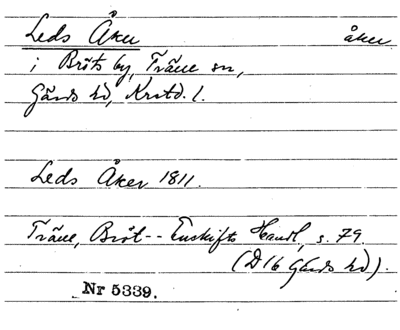 Leds Åker åker
i Bröts by, Träne sn,
Gärds hd, Krstd. l.
Leds Åker 1811.
Träne, Bröt-- Enskifts Handl, s. 79.
(D16 Gärds hd).
Nr 5339.